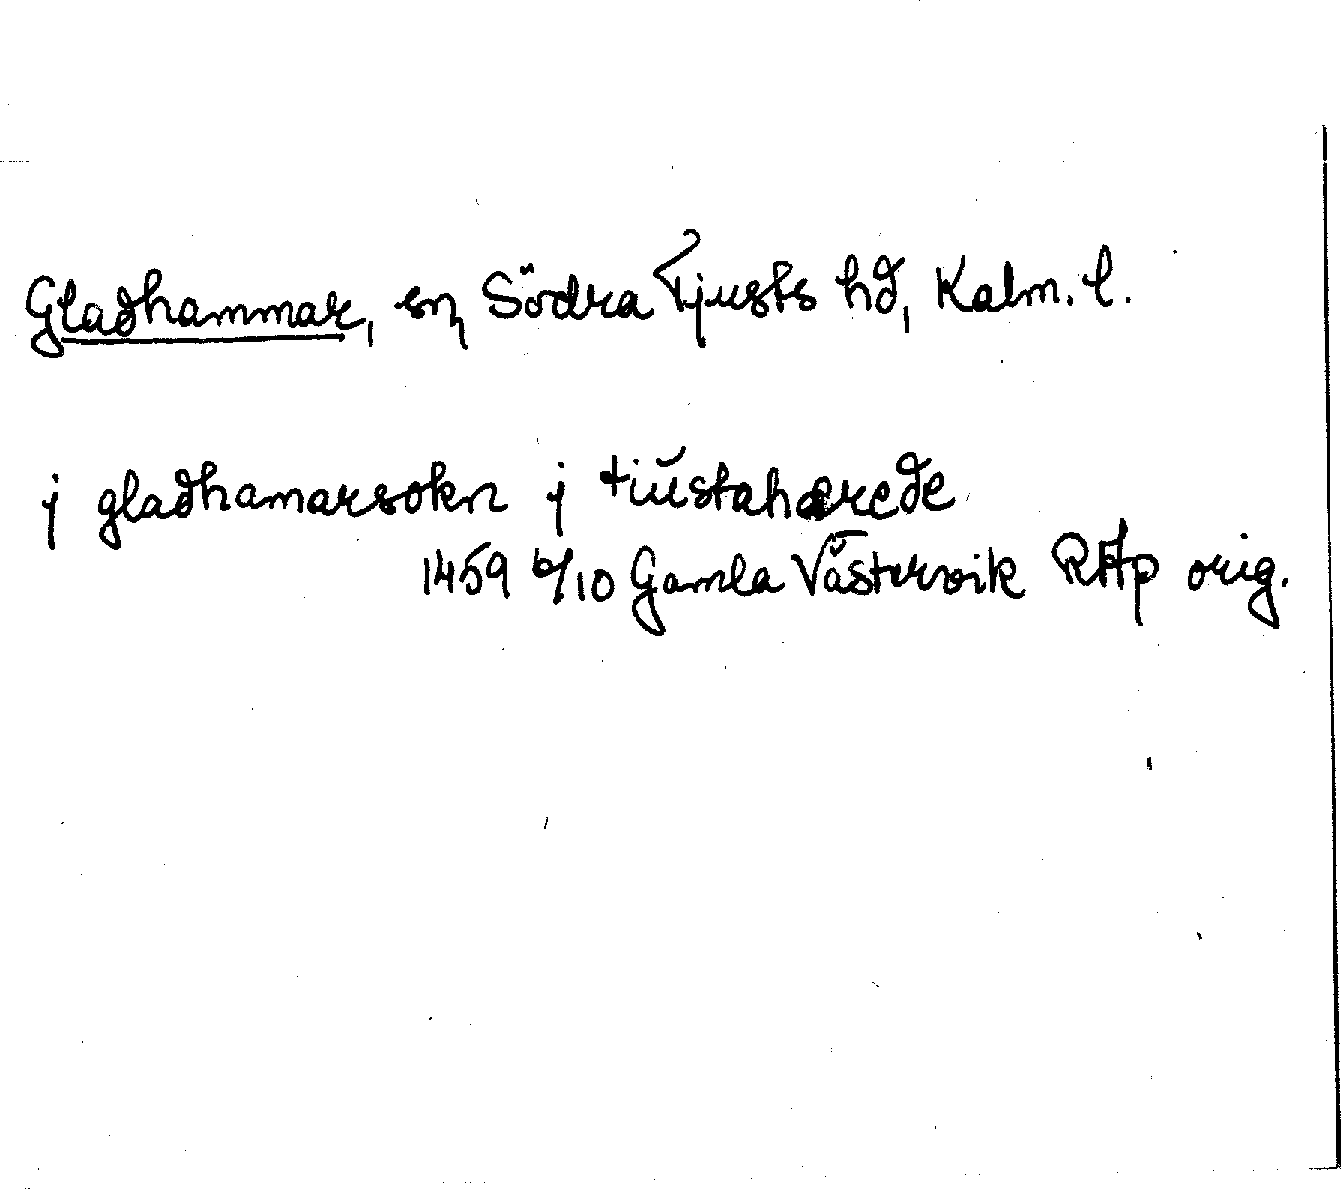 Gladhammar, sn, Södra Tjusts hd, Kalm. l.
j gladhamarsokn j tiŭstahærede
1459 6/10 Gamla Västervik RAp orig.